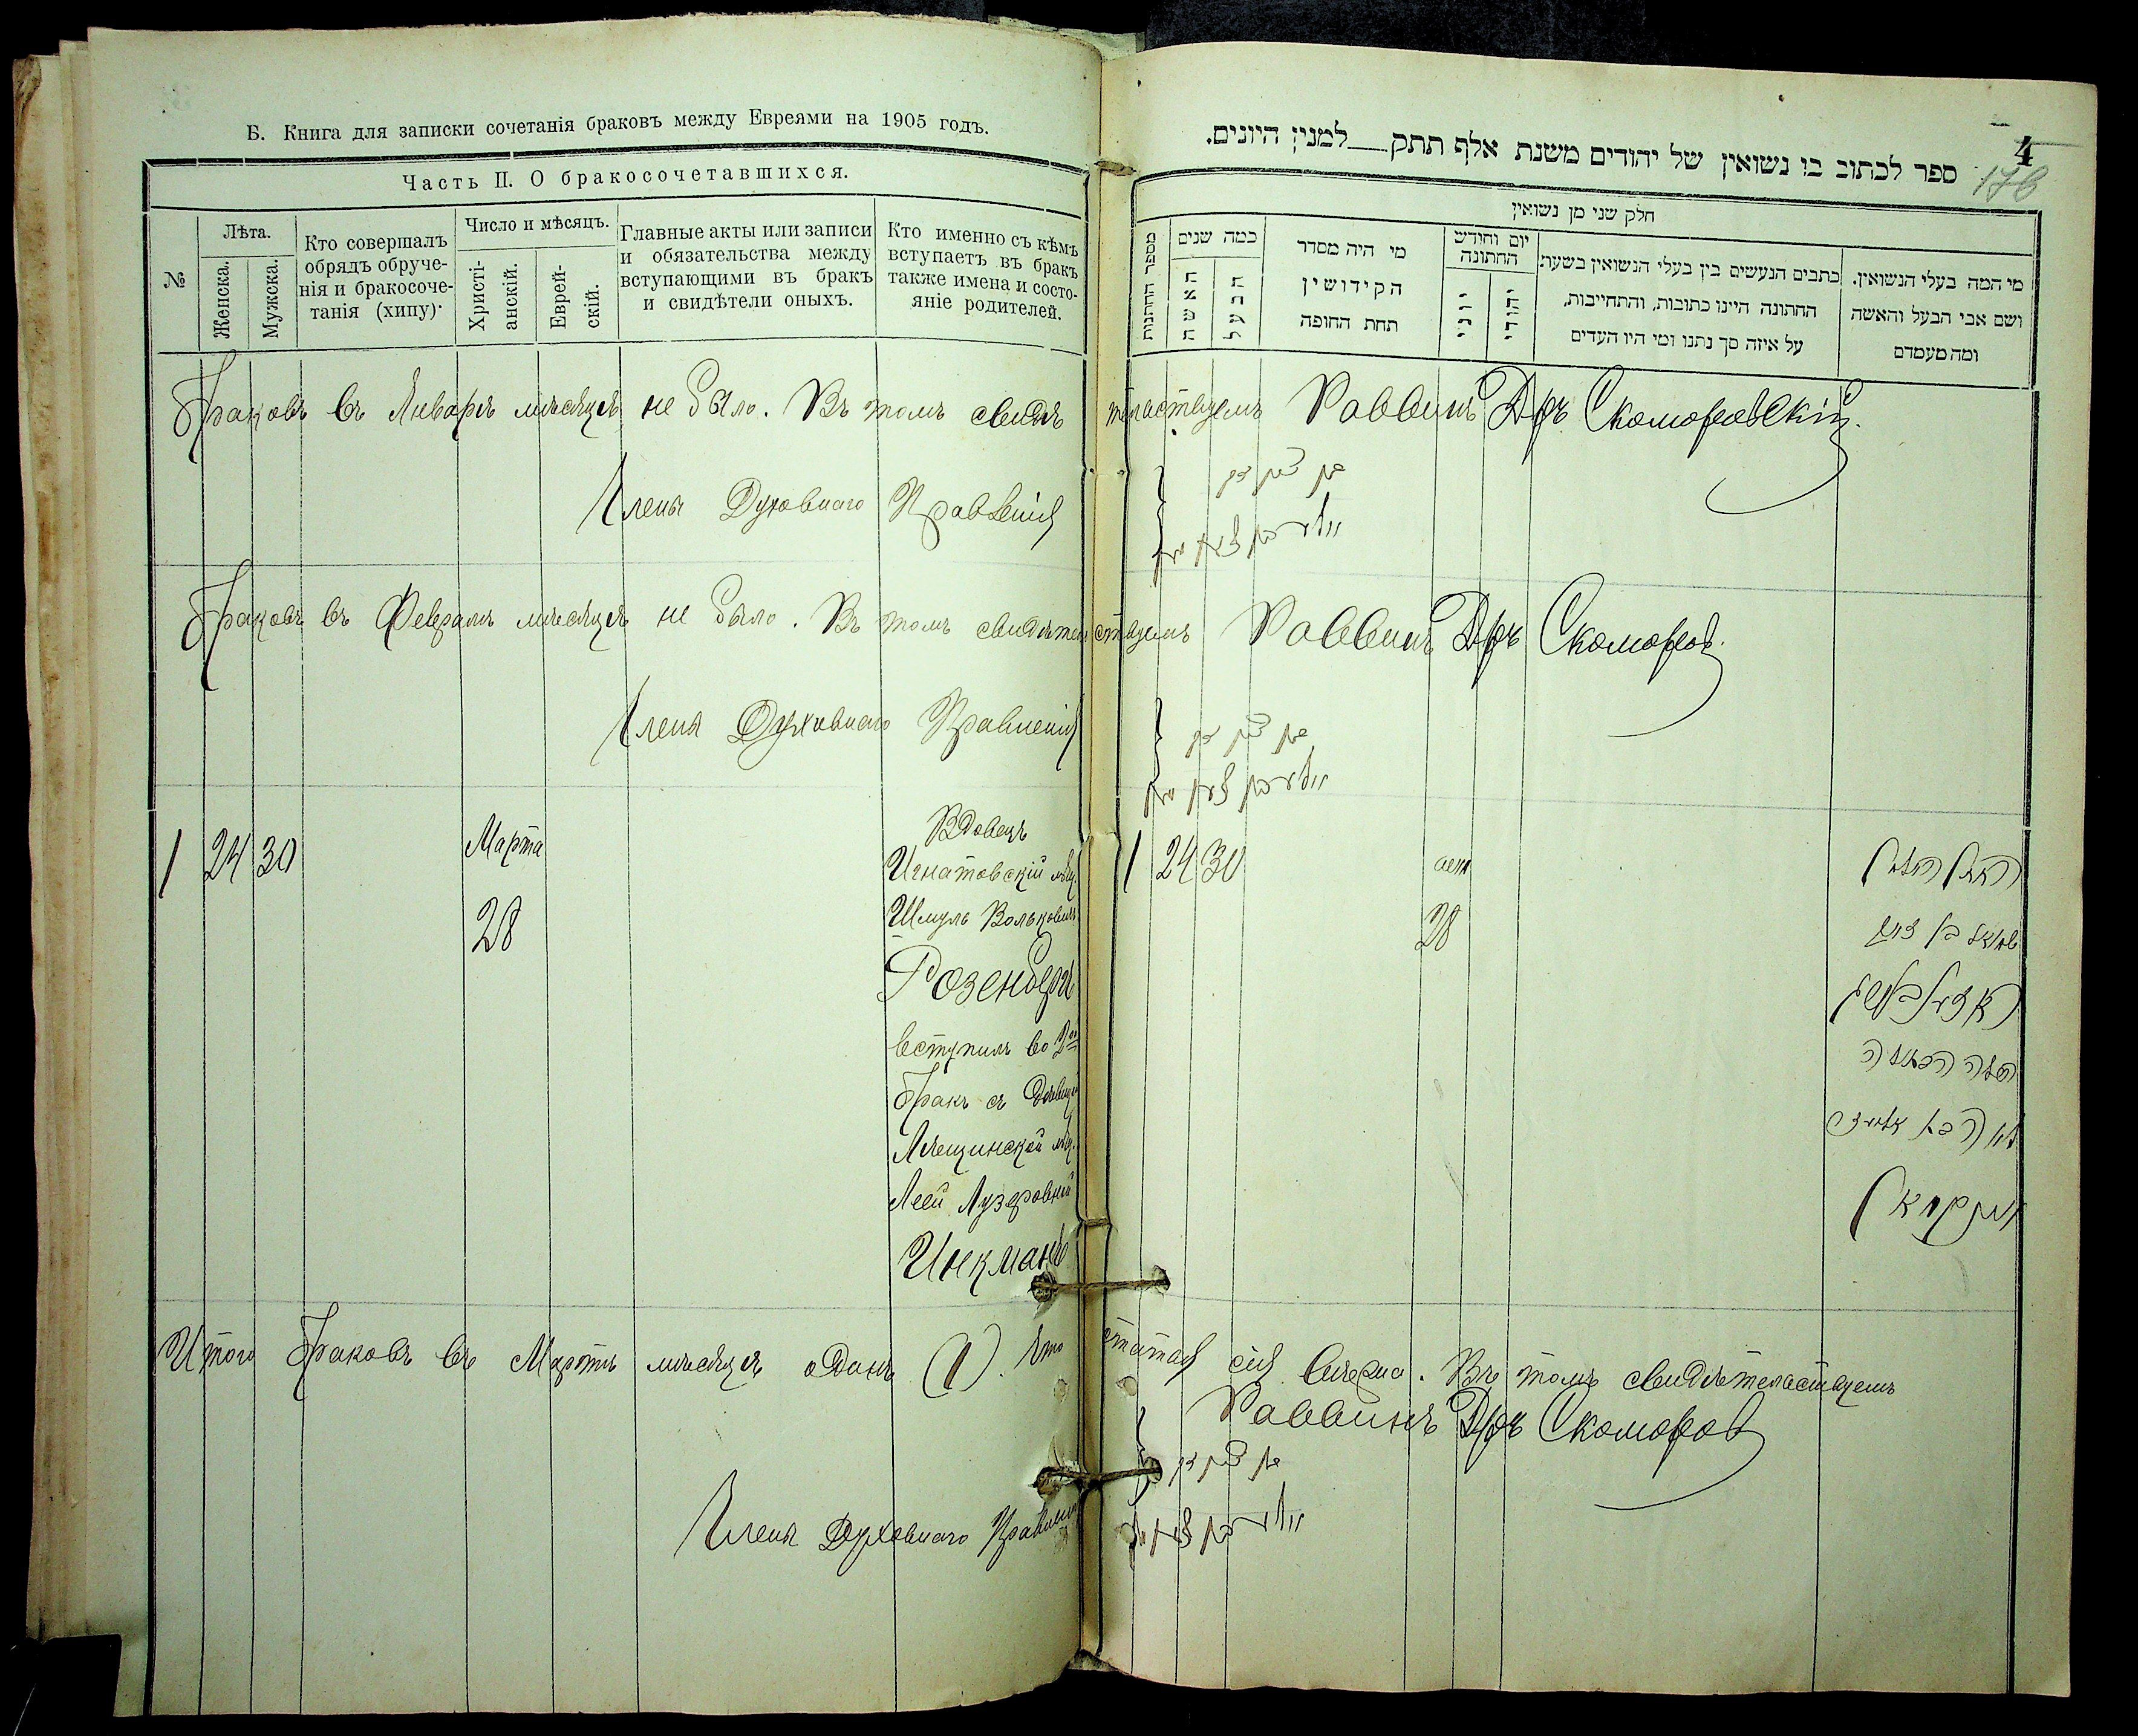 Б. Книга для записки сочетанія браковъ между Евреями на 1905 годъ.
Часть II. О бракосочетавшихся.
№
Лѣта.
Женска.
Мужска.
Кто совершалъ
обрядъ обруче-
нія и бракосоче-
танія (хипу).
Число и мѣсяцъ.
Христі-
анскій.
Еврей-
скій.
Главные акты или записи
и обязательства между
вступающими въ бракъ
и свидѣтели оныхъ.
Кто именно съ кѣмъ
вступаетъ въ бракъ
также имена и состо-
яніе родителей.
Браковъ въ Январѣ мѣсяцѣ не было. Въ томъ свидѣтельствуемъ Раввинъ Дръ Скоморовскій.
Члены Духовнаго Правленія
Браковъ въ Февралѣ мѣсяцѣ не было. Въ томъ свидѣтельствуемъ Раввинъ Дръ Скоморов.
Члены Духовнаго Правленія
1 24 30
Марта
28
Вдовецъ
Игнатовскій мѣщ.
Шмуль Вольковичъ
Розенберг
вступилъ во 2ой
бракъ съ дѣвицей
Лещинской мѣщ.
Леей Лузеровной
Инкман
Итого браковъ въ Мартѣ мѣсяцѣ одинъ (1). Что статья сія вѣрна. Въ томъ свидѣтельствуемъ
Раввинъ Дръ Скоморов
Члены Духовнаго Правленія
4
176
ספר לכתוב בו נשואין של יהודים משנת אלף תתק__למנין היונים.
חלק שני מן נשואין
מספר החתונות
כמה שנים
האשה
הבעל
מי היה מסדר
הקידושין
תחת החופה
יום וחודש
החתונה
יוני
יהודי
כתבים הנעשים בין בעלי הנשואין בשעת
החתונה היינו כתובות, והתחייבות,
על איזה סך נתנו ומי היו העדים
מי המה בעלי הנשואין.
ושם אבי הבעל והאשה
ומה מעמדם
1 24 30
28